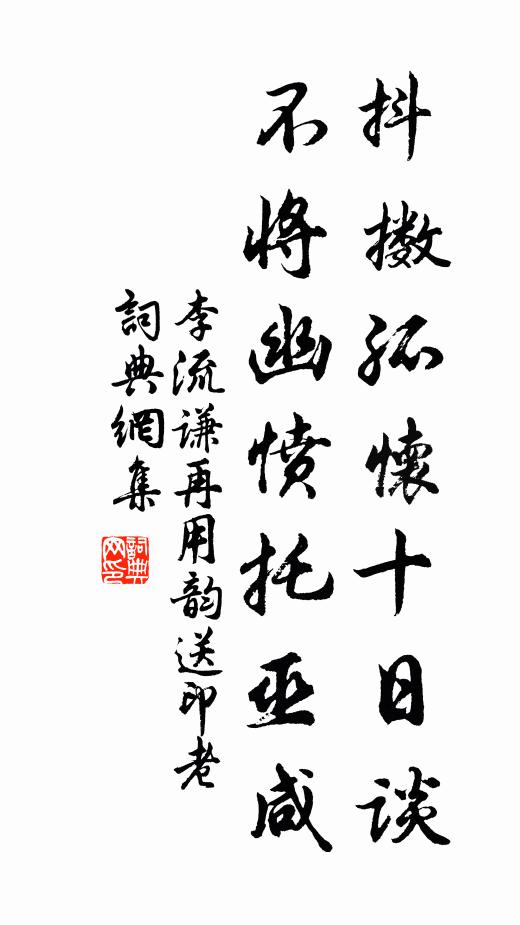 抖擞孤懷十日談
不將幽憤托巫咸
李流谦再用韵送印老
詞典網集
詞典网印